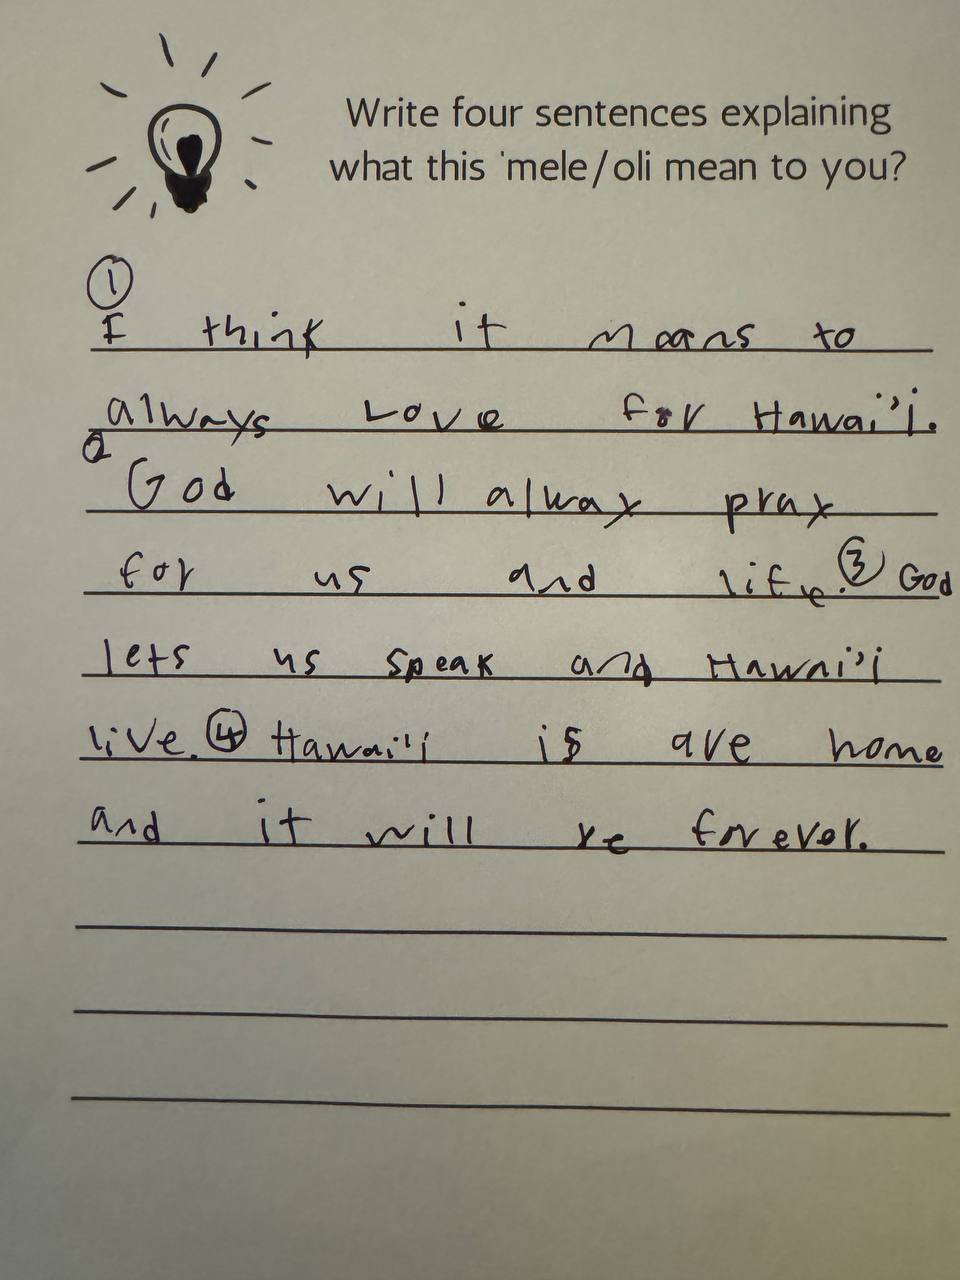 Write four sentences explaining
what this 'mele/oli mean to you?
①
I think it means to
always Love for Hawai'i.
② God will alwax prax
for us and life. ③ God
lets us speak and Hawai'i
live. ④ Hawai'i is are home
and it will re forever.